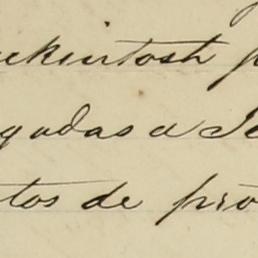 ckintosh p
gadas a Je
tos de pro